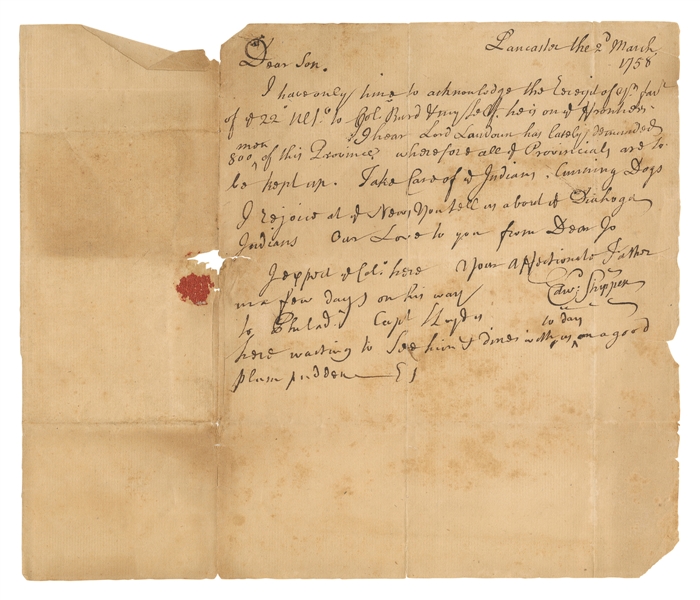 Lancaster the 2d March
1758
Dear Son.
I have only time to acknowledge the Receipt of yr. favr.
of ye 22d Ulto. to Col: Burd & myself. he is on ye Frontiers.
I hear Lord Loudoun has lately demanded
men
800, of this Province, wherefore all ye Provincials are to
be kept up. Take Care of ye Indians. Cunning Dogs
I rejoice at ye News You tell us about ye Diahoga
Indians Our Love to you from Dear Jo
I expect ye Col: here Your Affectionate Father
in a few days on his way Edw: Shippen
to Philad. Capt Lloyd is to day
here waiting to see him & dines with us on a good
plum pudden ES